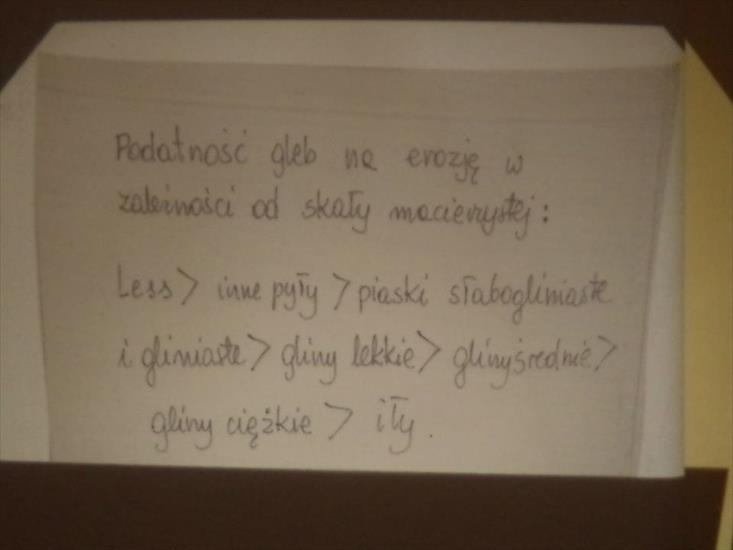 Podatność gleb na erozję w
zależności od skały macierzystej:
Less > inne pyły > piaski słabogliniaste
i gliniaste > gliny lekkie > gliny średnie >
gliny ciężkie > iły.